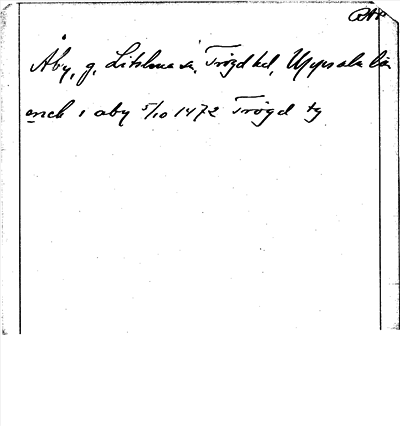 Åby, g, Litslena sn, Trögd hd, Uppsala län
aby 5/10 1472 Trögd ty